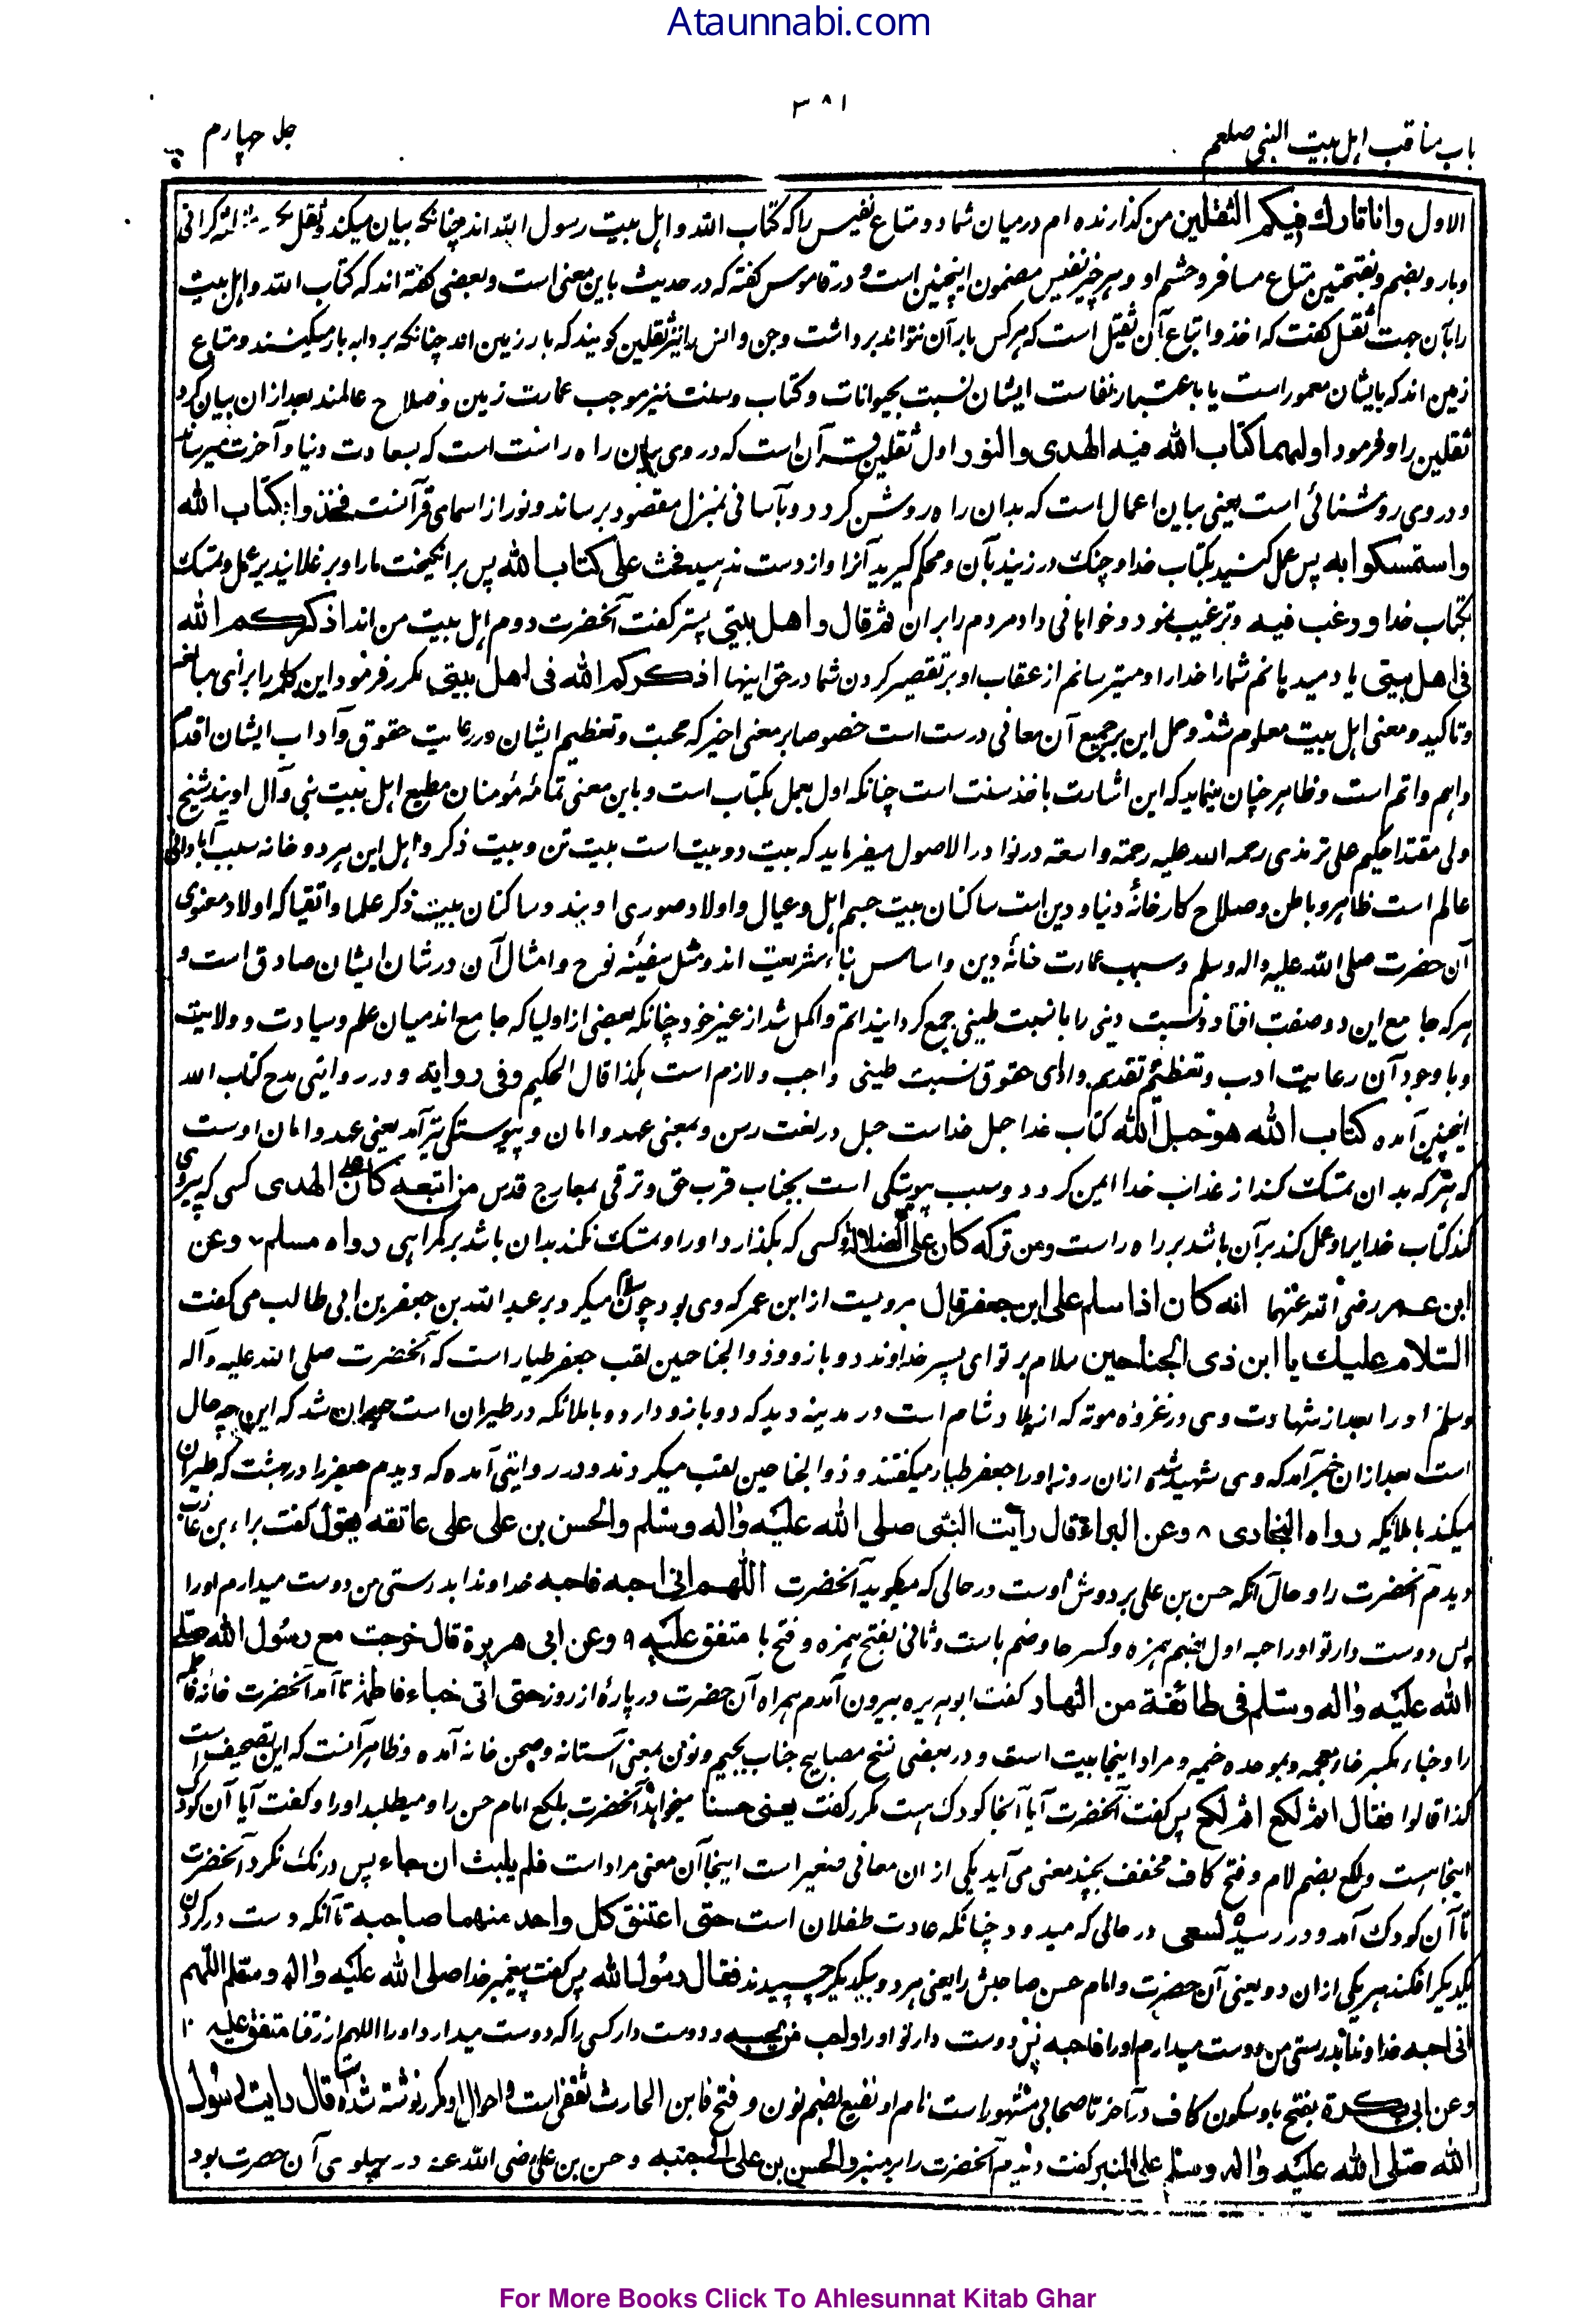 Ataunnabi.com
۳۸۱
باب مناقب اہل بیت النبی صلعم
جلد چہارم
الاول وانا تارك فیكم الثقلین من گذارنده ام درمیان شما دو متاع نفیس را که کتاب الله و اہل بیت رسول الله اند چنانکه بیان میکند و ثقل گرانی
وبار و بضم و بفتحتین متاع مسافر و حشم او و ہر چیز نفیس مصئون اینچنین است و در قاموس گفته که در حدیث باین معنی است و بعضی گفته اند که کتاب الله و اہل بیت
را بآن جہت ثقل گفت که اخذ و اتباع آن ثقیل است که ہر کس بار آن نتواند برداشت و جن و انس را نیز ثقلین گویند که بار زمین اند چنانکه بر دابه بار میکنند و متاع
زمین اند که بایشان معمور است یا باعتبار نفاست ایشان نسبت بحیوانات و کتاب و سنت نیز موجب عمارت زمین و صلاح عالمند بعد ازان بیان کرد
ثقلین را و فرمود اولهما كتاب الله فیه الهدى والنور اول ثقلین قرآن است که در وی بیان راه راست است که بسعادت دنیا و آخرت میرساند
و در وی روشنائی است یعنی بیان اعمال است که بدان راه روشن گردد و بآسانی بمنزل مقصود برساند و نور از اسمای قرآنست فخذوا بكتاب الله
واستمسكوا به پس عمل کنید بکتاب خدا و چنگ در زنید بآن و محکم گیرید آنرا و از دست ندہید فحث على كتاب الله پس برانگیخت ما را و برغلانید بر عمل و تمسک
بکتاب خدا و رغب فیه و ترغیب نمود و خواہانی داد مردم را بران ثم قال واهل بیتی پستر گفت آنحضرت دوم اہل بیت من اند اذكركم الله
فی اهل بیتی یاد میدہانم شما را خدا را و میترسانم از عقاب او بر تقصیر کردن شما در حق اینہا اذكركم الله فی اهل بیتی مکرر فرمود این کلمه را برای مبالغه
و تاکید و معنی اہل بیت معلوم شد و حمل این بر جمیع آن معانی درست است خصوصا بر معنی اخیر که محبت و تعظیم ایشان و رعایت حقوق و آداب ایشان اقدم
واہم واتم است و ظاہر چنان مینماید که این اشارت باخذ سنت است چنانکه اول بعمل بکتاب است و باین معنی تمامۀ مؤمنان مطیع اہل بیت نبی و آل اویند شیخ
ولی مقتدا حکیم علی ترمذی رحمه الله علیه رحمة واسعة در نوادر الاصول میفرماید که بیت دو بیت است بیت تن و بیت ذکر و اہل این ہر دو خانه سبب آبادانی
عالم است ظاہر و باطن و صلاح کارخانۀ دنیا و دین است ساکنان بیت جسم اہل و عیال و اولاد صوری اویند و ساکنان بیت ذکر علما و اتقیا که اولاد معنوی
آن حضرت صلی الله علیه واله وسلم و سبب عمارت خانۀ دین و اساس بناء شریعت اند و مثل سفینه نوح و امثال آن در شان ایشان صادق است و
ہر که جامع این دو صفت افتاد و نسبت دینی را با نسبت طینی جمع گردانید اتم و اکمل شد از غیر خود چنانکه بعضی از اولیا که جامع اند میان علم و سیادت و ولایت
و با وجود آن رعایت ادب و تعظیم و تقدیم و ادای حقوق نسبت طینی واجب و لازم است ہکذا قال الحکیم وفی روایة و در روایتی مدح کتاب الله
اینچنین آمده كتاب الله هو حبل الله کتاب خدا حبل خداست حبل در لغت رسن و بمعنی عہد و امان و پیوستگی نیز آمد یعنی عہد و امان اوست
که ہر که بدان تمسک کند از عذاب خدا ایمن گردد و سبب پیوستگی است بجناب قرب حق و ترقی بمعارج قدس من اتبعه كان على الهدى کسی که پیروی
کند کتاب خدایرا و عمل کند بر آن باشد بر راه راست ومن تركه كان على الضلالة و کسی که بگذارد او را و تمسک نکند بدان باشد بر گمراہی رواه مسلم ۷ وعن
ابن عمر رضی الله عنهما انه كان اذا سلم على ابن جعفر قال مرویست از ابن عمر که وی بود چون سلام میکرد بر عبدالله بن جعفر بن ابی طالب می گفت
السلام علیك یا ابن ذی الجناحین سلام بر تو ای پسر خداوند دو بازو و ذوالجناحین لقب جعفر طیار است که آنحضرت صلی الله علیه وآله
وسلم او را بعد از شہادت وی در غزوۀ موته که از بلاد شام است در مدینه دید که دو بازو دارد و با ملائکه در طیران است حیران شد که این چه حال
است بعد ازان خبر آمد که وی شہید شده ازان روز او را جعفر طیار میگفتند و ذوالجناحین لقب میکردند و در روایتی آمده که دیدم جعفر را در بہشت که طیران
میکند با ملائکه رواه البخاری ۸ وعن البراء قال رأیت النبی صلى الله علیه واله وسلم والحسن بن علی على عاتقه یقول گفت براء بن عازب
دیدم آنحضرت را و حال آنکه حسن بن علی بر دوش اوست در حالی که میگوید آنحضرت اللهم انی احبه فاحبه خداوندا بدرستی من دوست میدارم او را
پس دوست دار تو او را احبه اول بضم ہمزه و کسر حا و ضم با ست و ثانی بفتح ہمزه و فتح با متفق علیه ۹ وعن ابی هریرة قال خرجت مع رسول الله صلى
الله علیه واله وسلم فی طائفة من النهار گفت ابوہریره بیرون آمدم ہمراه آن حضرت در پارۀ از روز حتى اتى خباء فاطمة تا آمد آنحضرت خانه فاطمه
را و خباء بکسر خاء معجمه و بموحده خیمه و مراد اینجا بیت است و در بعضی نسخ مصابیح جناب بجیم و نون بمعنی آستانه و صحن خانه آمده و ظاہر آنست که این تصحیف است
کذا قالوا فقال اثم لكع اثم لكع پس گفت آنحضرت آیا آنجا کودک ہست مکرر گفت یعنی حسنا میخواہد آنحضرت بلکع امام حسن را و میطلبد او را و گفت آیا آن کودک
اینجا ہست و لکع بضم لام و فتح کاف مخفف بچند معنی می آید یکی از ان معانی صغیر است اینجا آن معنی مراد است فلم یلبث ان جاء پس درنگ نکرد آنحضرت
تا آن کودک آمد و در رسید یسعى در حالی که میدود چنانکه عادت طفلان است حتى اعتنق كل واحد منهما صاحبه تا آنکه دست در گردن
یکدیگر افکند ہر یکی از ان دو یعنی آن حضرت و امام حسن صاحبش را یعنی ہر دو بیکدیگر چسپیدند فقال رسول الله پس گفت پیغمبر خدا صلى الله علیه واله وسلم اللهم
انی احبه خداوندا بدرستی من دوست میدارم او را فاحبه پس دوست دار تو او را واحب من یحبه و دوست دار کسی را که دوست میدارد او را اللہم ارزقنا متفق علیه ۱۰
وعن ابی بكرة بفتح با و سکون کاف در آخر تا صحابی مشہور است نام او نفیع بضم نون و فتح فا بن الحارث ثقفی است و احوال او مکرر نوشته شده است قال رأیت رسول
الله صلى الله علیه واله وسلم على المنبر گفت دیدم آنحضرت را بر منبر والحسن بن علی الى جنبه و حسن بن علی رضی الله عنه در پہلوی آن حضرت بود
For More Books Click To Ahlesunnat Kitab Ghar